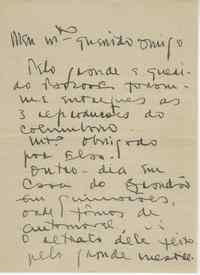 Meu mto querido Amigo
Pelo grande e queri-
do foram-
me entregues as
3 reproduções do
Columbano.
Mto obrigado
por Elas!
Outro dia em
Casa do
em Guimarães,
onde fômos de
automovel, vi
o retrato dele feito
pelo grande mestre.